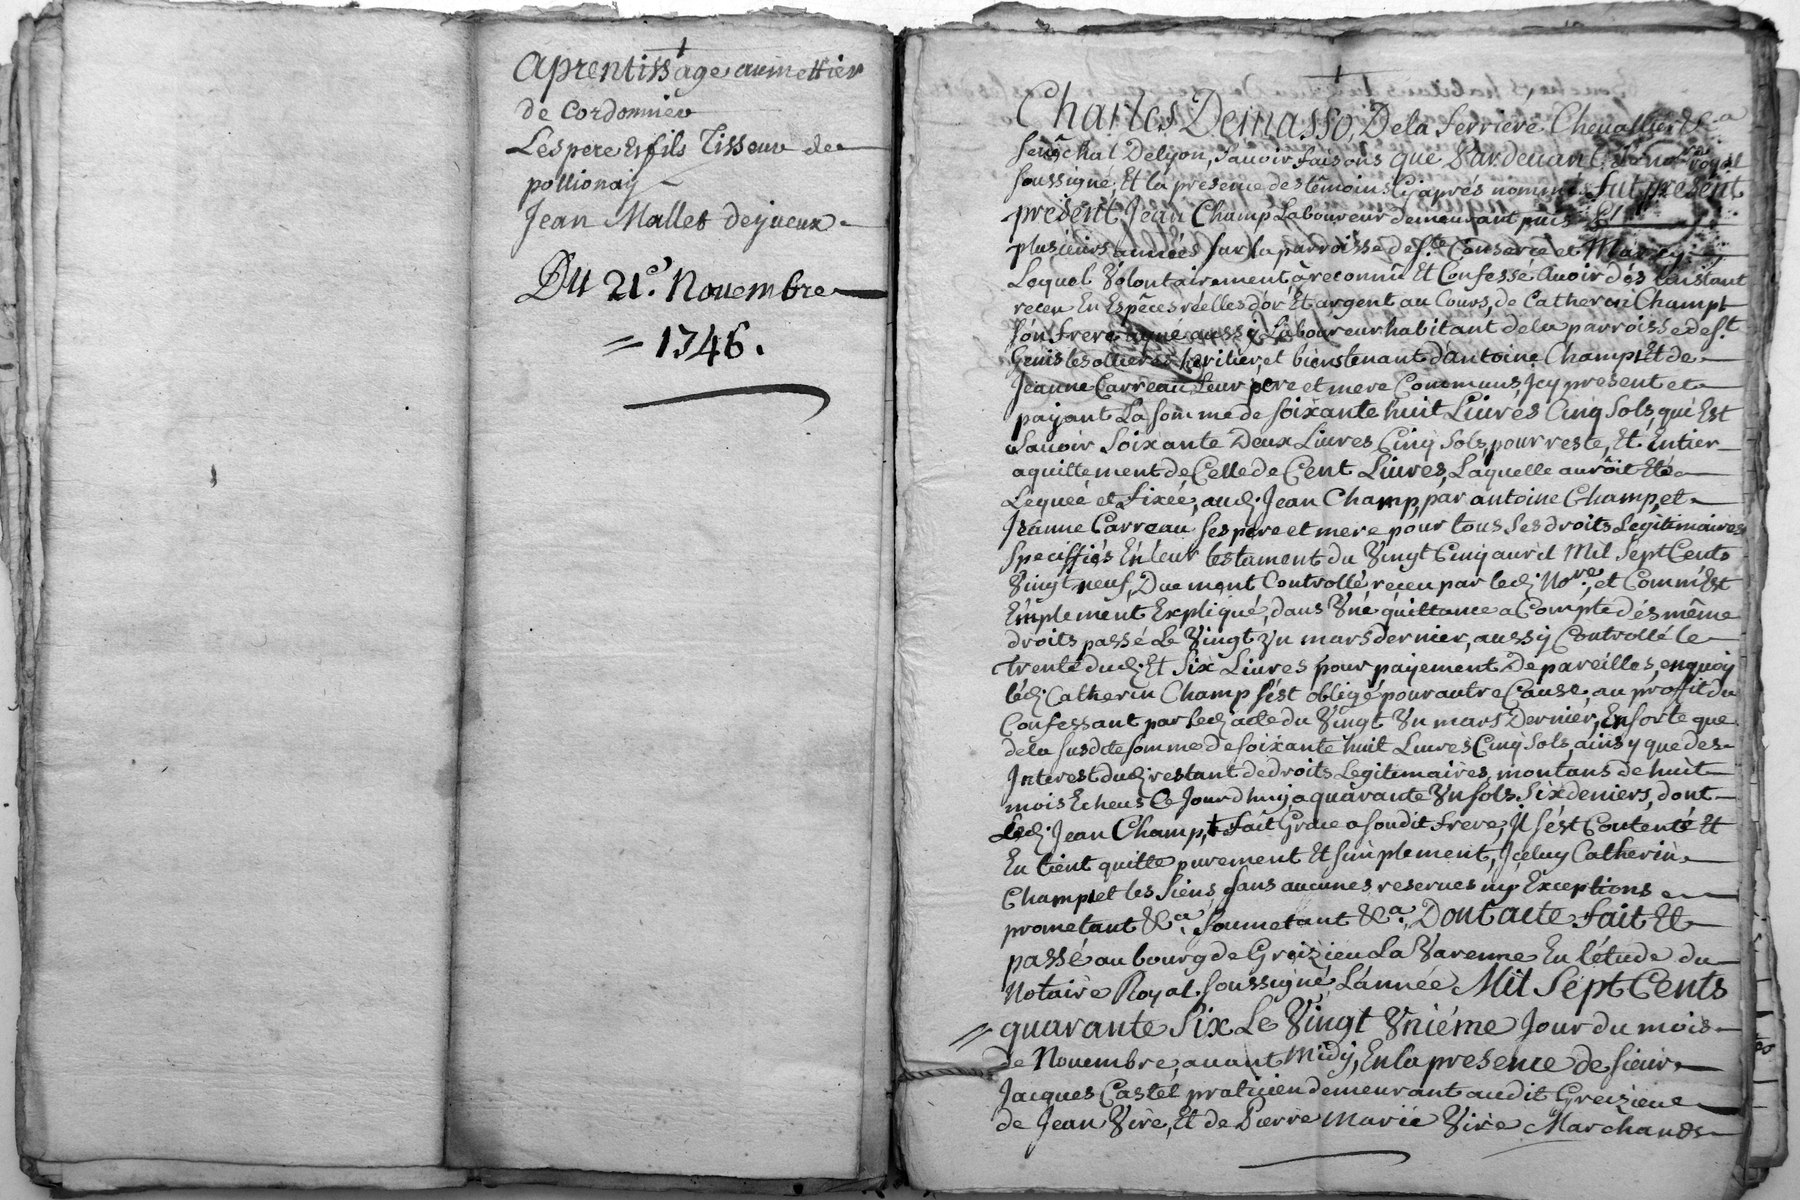 aprentissage au mettier
de Cordonnier
Les pere et fils Tisseur de
pollionay
Jean Mallet de jueux
Du 21e. Novembre
= 1746.
Charles Demasso, De la ferriere Chevallier &ca
senêchal De lyon, Savoir faisons que Pardevant Le nore royal
soussigné, Et la presence des têmoins Cy aprés nommés fut present
present Jean Champ Laboureur demeurant puis
plusieurs années sur la parroisse de ste. Consorce et Marcy
Lequel Volontairement a reconnû Et Confessé Avoir dés L'instant
receu En Espêces réelles d'or Et argent au Cours, de Catherin Champt
son frere agné aussy Laboureur habitant de la parroisse de st.
Genis les ollieres heritier, et bienstenant d'antoine Champt Et de
Jeanne Carreau Leur pere et mere Communs, Icy present et
payant La somme de soixante huit Livres Cinq Sols, qui Est
Savoir Soixante Deux Livres Cinq Sols pour reste, Et Entier
aquittement de Celle de Cent Livres, Laquelle auroit Eté
Leguée et fixée, aud. Jean Champ, par antoine Champ, et
Jeanne Carreau ses pere et mere pour tous ses droits Legitimaires
Speciffiés En leur testament du Vingt Cinq avril Mil Sept Cents
Vingt neuf, Duement Controllé receu par led. Nore, et Comm'Est
Emplement Expliqué, dans Vne quittance a Compte dés même
droits passé Le Vingt Vn mars dernier, aussy Controllé le
Trente dud. Et Six Livres pour payement De pareilles, en quoy
led. Catherin Champ s'est obligé pour autre Cause, au profit du
Confessant par led. acte du Vingt Vn mars Dernier, En sorte que
de la susdte somme de soixante huit Livres Cinq Sols, ainsy que des
Interest dud. restant de droits Legitimaires, montans de huit
mois Echeus Ce Jourd'huy a quarante Vn sols Six deniers, dont
Led. Jean Champ, fait Grace a son dit frere, Il s'ést Contenté Et
En tient quitte purement Et simplement, Iceluy Catherin
Champt et les siens, sans aucunes reserves ny Exceptions
prometant &ca. soumetant &ca. Dont acte fait Et
passé au bourg de Greizieu La Varenne En l'étude du
Notaire Royal soussigné, L'année Mil Sept Cents
= quarante Six Le Vingt Vniéme Jour du mois
de Novembre, avant Midy, En la presence de sieur
Jacques Castel praticien demeurant audit Greizieu
de Jean Vire, Et de Pierre Marie Vire Marchands